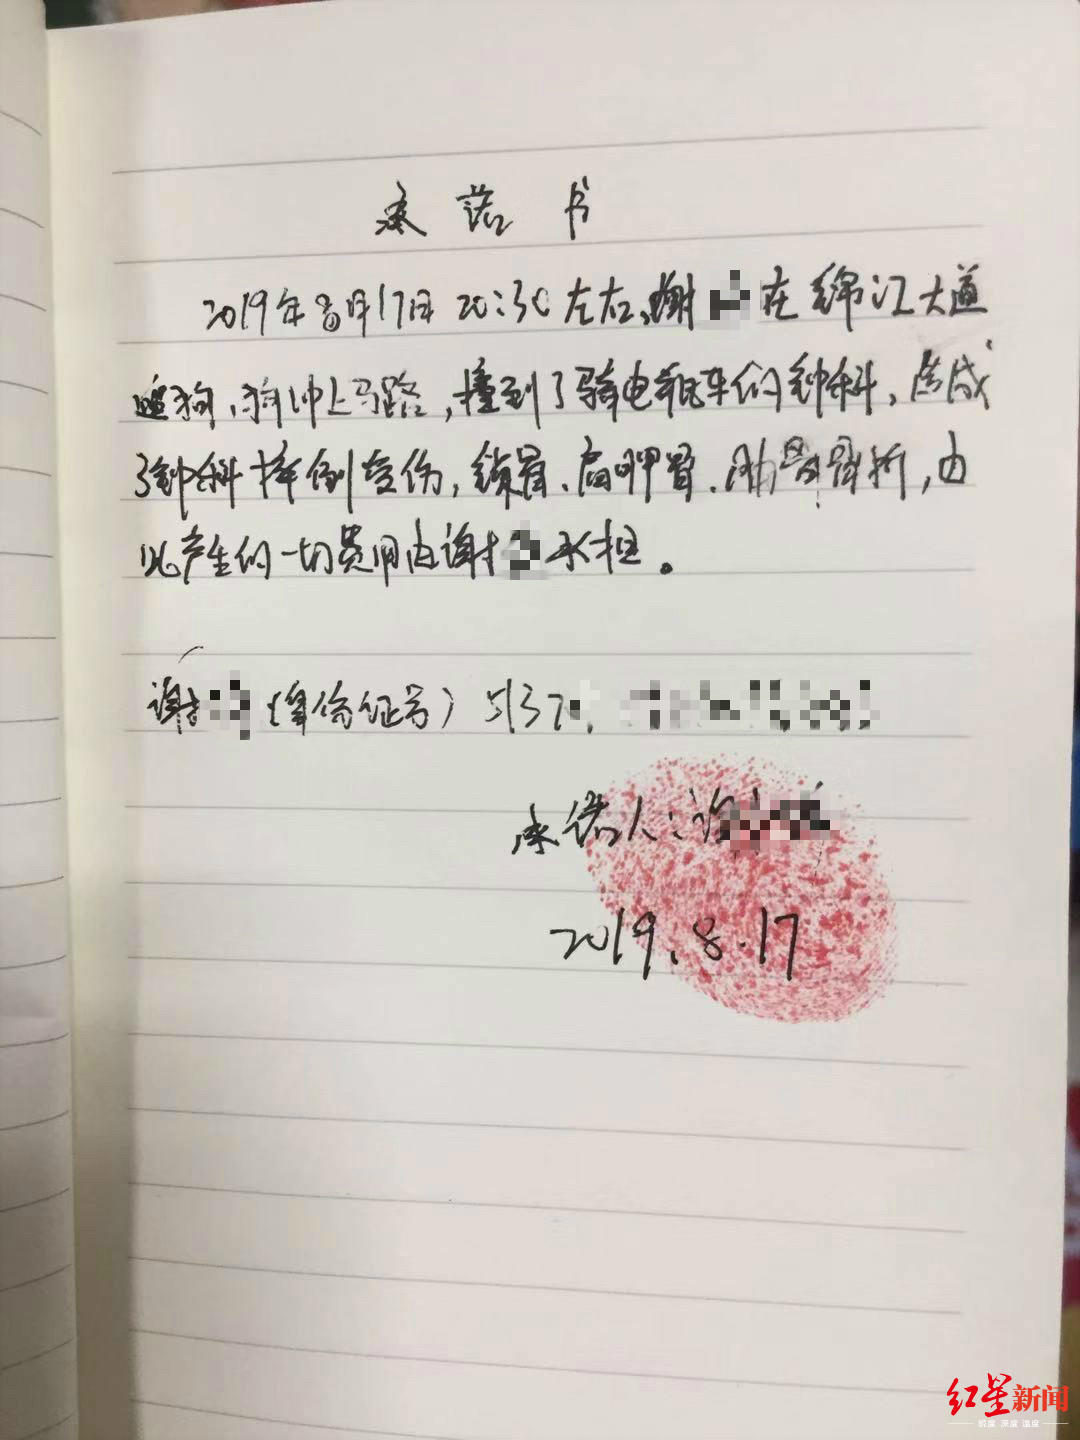 承诺书
2019年8月17日20:30左右,谢 在锦江大道
遛狗,狗冲上马路,撞到了骑电瓶车的钟科,造成
了钟科摔倒受伤,锁骨、肩胛骨、肋骨骨折,由
此产生的一切费用由谢 承担。
谢 (身份证号)5137
承诺人:谢
2019.8.17
红星新闻
锐度 深度 温度